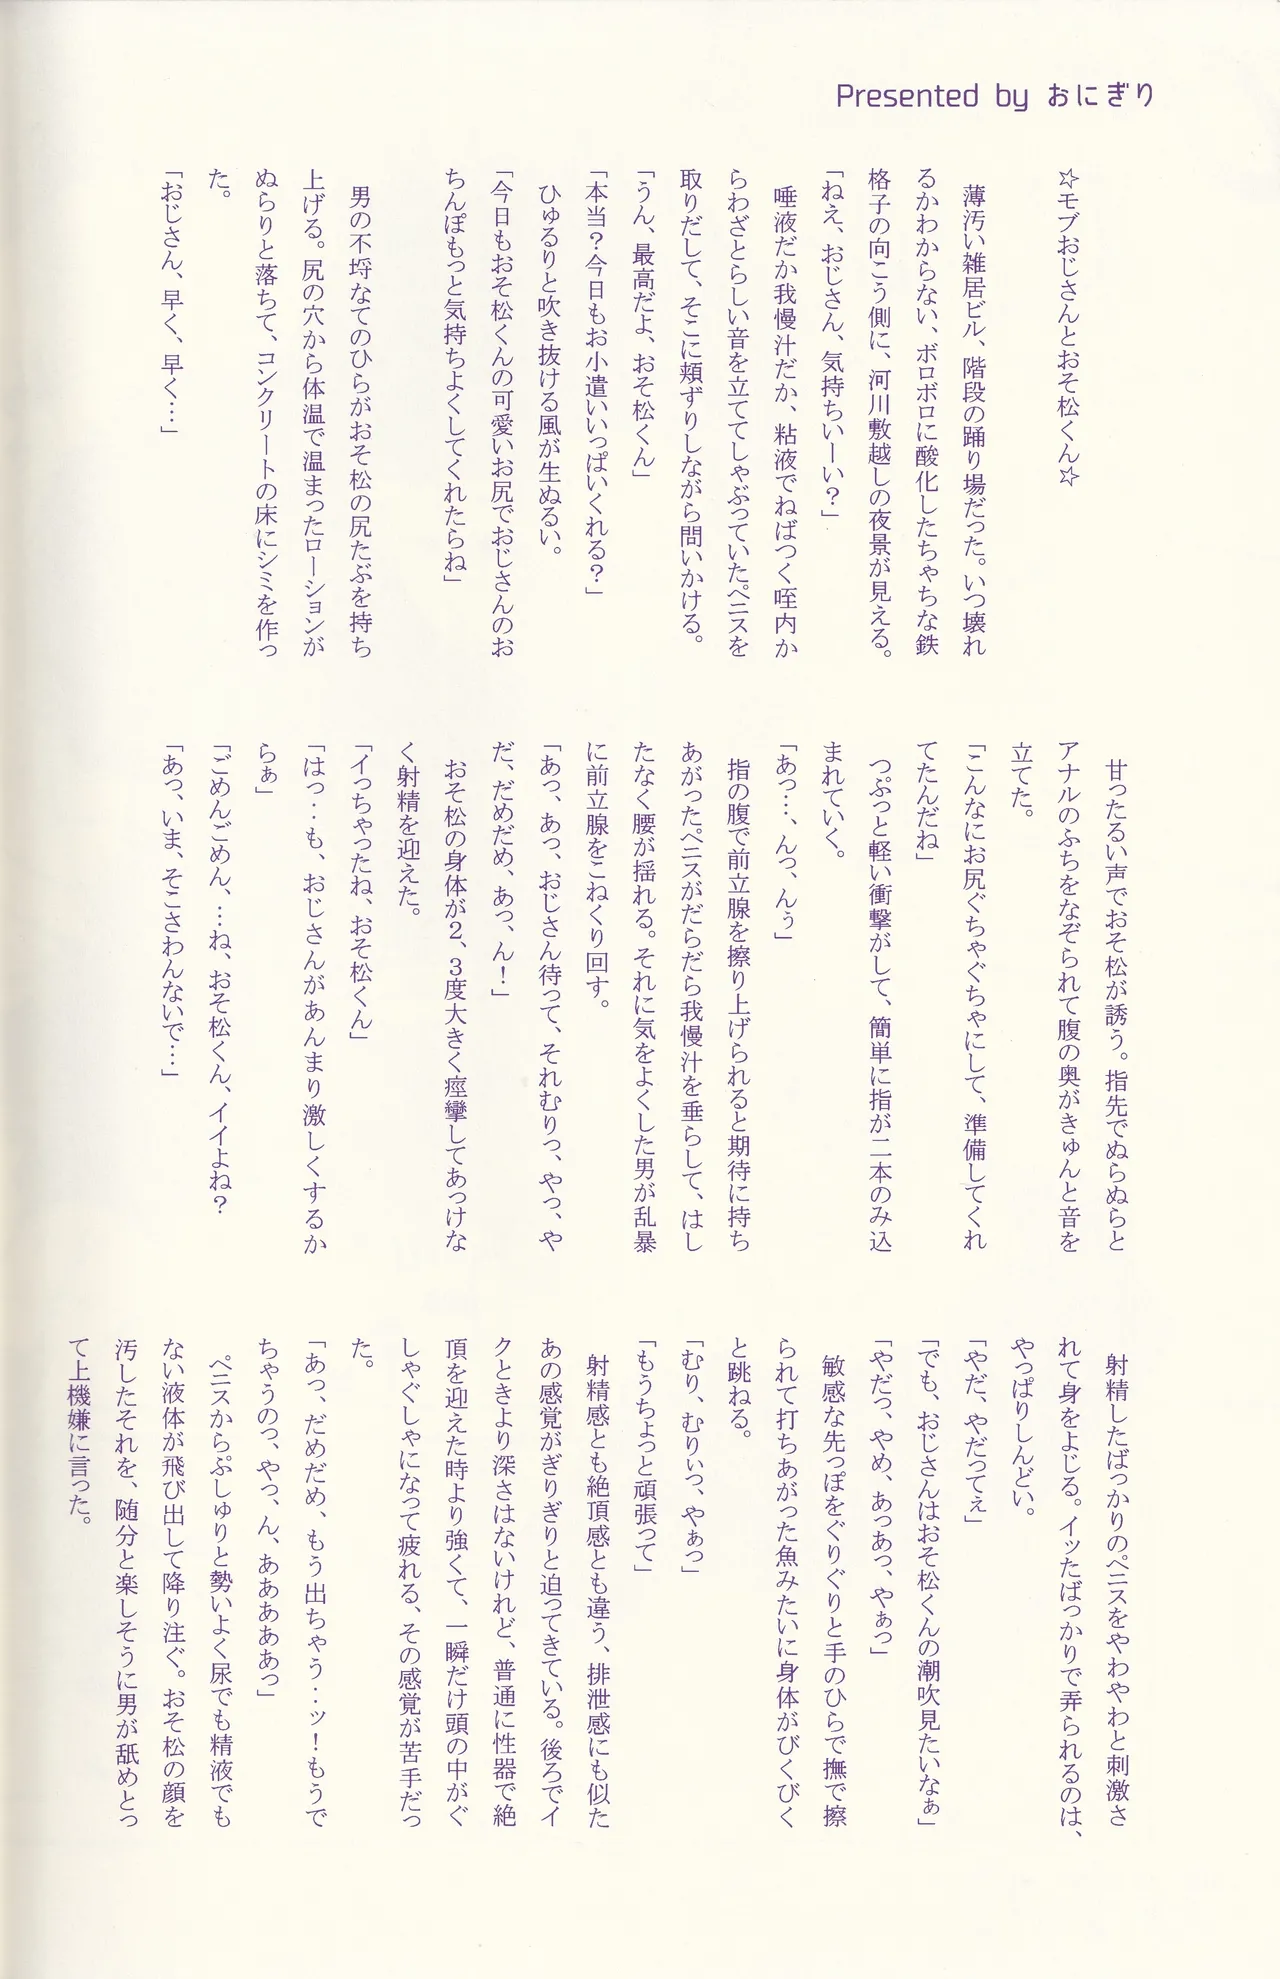 Presented by おにぎり
☆モブおじさんとおそ松くん☆
薄汚い雑居ビル、階段の踊り場だった。いつ壊れ
るかわからない、ボロボロに酸化したちゃちな鉄
格子の向こう側に、河川敷越しの夜景が見える。
「ねえ、おじさん、気持ちいーい？」
唾液だか我慢汁だか、粘液でねばつく咥内か
らわざとらしい音を立ててしゃぶっていたペニスを
取りだして、そこに頬ずりしながら問いかける。
「うん、最高だよ、おそ松くん」
「本当？今日もお小遣いいっぱいくれる？」
ひゅるりと吹き抜ける風が生ぬるい。
「今日もおそ松くんの可愛いお尻でおじさんのお
ちんぽもっと気持ちよくしてくれたらね」
男の不埒なてのひらがおそ松の尻たぶを持ち
上げる。尻の穴から体温で温まったローションが
ぬらりと落ちて、コンクリートの床にシミを作っ
た。
「おじさん、早く、早く…」
甘ったるい声でおそ松が誘う。指先でぬらぬらと
アナルのふちをなぞられて腹の奥がきゅんと音を
立てた。
「こんなにお尻ぐちゃぐちゃにして、準備してくれ
てたんだね」
つぷっと軽い衝撃がして、簡単に指が二本のみ込
まれていく。
「あっ…、んっ、んぅ」
指の腹で前立腺を擦り上げられると期待に持ち
あがったペニスがだらだら我慢汁を垂らして、はし
たなく腰が揺れる。それに気をよくした男が乱暴
に前立腺をこねくり回す。
「あっ、あっ、おじさん待って、それむりっ、やっ、や
だ、だめだめ、あっ、ん！」
おそ松の身体が２、３度大きく痙攣してあっけな
く射精を迎えた。
「イっちゃったね、おそ松くん」
「はっ‥も、おじさんがあんまり激しくするか
らぁ」
「ごめんごめん、…ね、おそ松くん、イイよね？
「あっ、いま、そこさわんないで…」
射精したばっかりのペニスをやわやわと刺激さ
れて身をよじる。イッたばっかりで弄られるのは、
やっぱりしんどい。
「やだ、やだってぇ」
「でも、おじさんはおそ松くんの潮吹見たいなぁ」
「やだっ、やめ、あっあっ、やぁっ」
敏感な先っぽをぐりぐりと手のひらで撫で擦
られて打ちあがった魚みたいに身体がびくびく
と跳ねる。
「むり、むりぃっ、やぁっ」
「もうちょっと頑張って」
射精感とも絶頂感とも違う、排泄感にも似た
あの感覚がぎりぎりと迫ってきている。後ろでイ
クときより深さはないけれど、普通に性器で絶
頂を迎えた時より強くて、一瞬だけ頭の中がぐ
しゃぐしゃになって疲れる、その感覚が苦手だっ
た。
「あっ、だめだめ、もう出ちゃう‥ッ！もうで
ちゃうのっ、やっ、ん、あああああっ」
ペニスからぷしゅりと勢いよく尿でも精液でも
ない液体が飛び出して降り注ぐ。おそ松の顔を
汚したそれを、随分と楽しそうに男が舐めとっ
て上機嫌に言った。